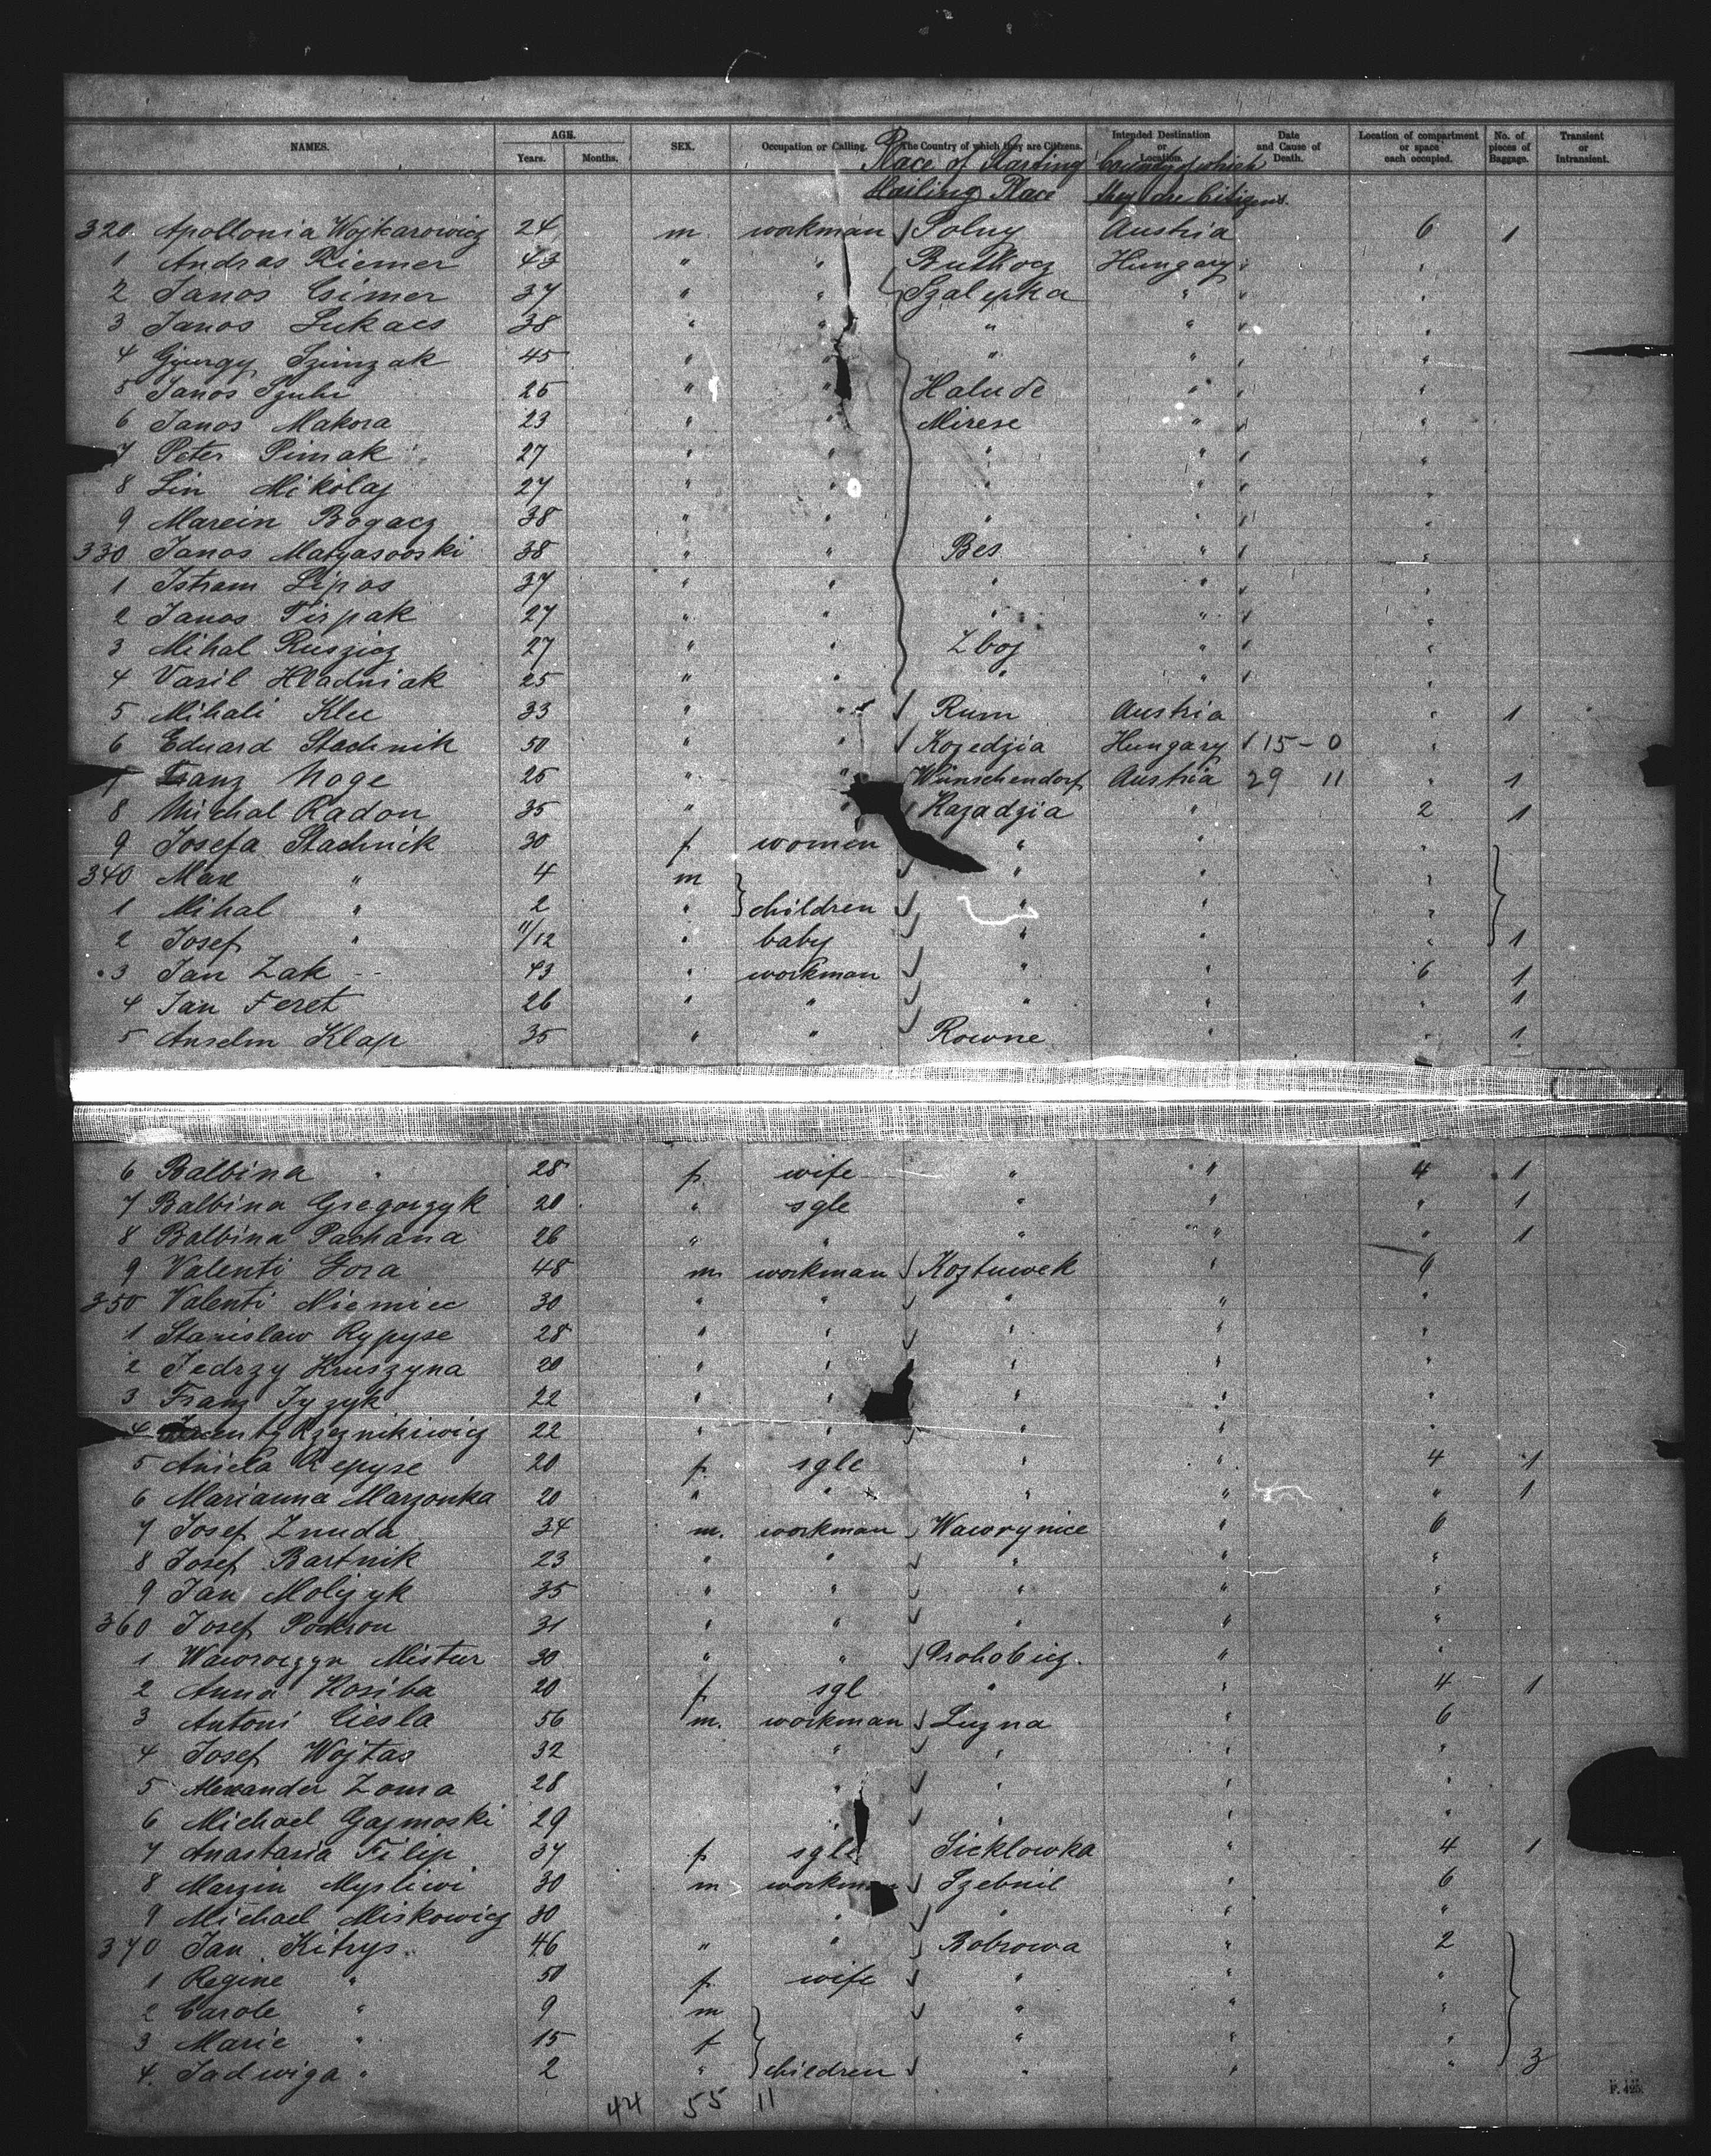 NAMES. AGE. Years. Months. SEX. Occupation or Calling. The Country of which they are Citizens. Intended Destination or Location. Date and Cause of Death. Location of compartment or space each occupied. No. of pieces of Baggage. Transient or Intransient.
Place of Starting Country of which
Hailing Place they are Citizens.
320 Apollonia Wojkarowicz 24 m workman Polny Austria 6 1
1 Andras Riemer 43 " " Butkocz Hungary "
2 Janos Csimer 37 " " Szalepka " "
3 Janos Lukacs 38 " " " " "
4 Gyurgy Szimzak 45 " " " " "
5 Janos Szuhi 25 " " Halude " "
6 Janos Makora 23 " " Mirese " "
7 Peter Pimak 27 " " " " "
8 Lin Mikolaj 27 " " " " "
9 Marcin Bogacz 38 " " " " "
330 Janos Matyasooski 38 " " Bes " "
1 Istram Lipos 37 " " " " "
2 Janos Tirpak 27 " " " " "
3 Mihal Ruszicz 27 " " Zboj " "
4 Vasil Hladniak 25 " " " " "
5 Mihali Klee 33 " " Rum Austria " 1
6 Eduard Stachnik 50 " " Kozedzia Hungary 15 - 0 "
7 Franz Noge 25 " " Wünschendorf Austria 29 11 " 1
8 Michal Radon 35 " " Kazadzia " 2 1
9 Josefa Stachnik 30 f women " " "
340 Max " 4 m " " "
1 Mihal " 2 " children " " "
2 Josef " 11/12 " baby " " " 1
3 Jan Zak 43 " workman " " 6 1
4 Jan Feret 26 " " " " " 1
5 Anselm Klap 35 " " Rowne " " 1
6 Balbina " 28 f wife " " 4 1
7 Balbina Gregorzyk 20 " sgle " " " 1
8 Balbina Pachana 26 " " " " " 1
9 Valenti Gora 48 m workman Koztuwek " 6
350 Valenti Niemiec 30 " " " " "
1 Stanislaw Rypyse 28 " " " " "
2 Jedrzy Kruszyna 20 " " " " "
3 Franz Jyzyk 22 " " " " "
4 Rzeznikiwicz 22 " " " " "
5 Aniela Repyse 20 f sgle " " 4 1
6 Marianna Marzonka 20 " " " " " 1
7 Josef Znuda 34 m. workman Wawrynice " 6
8 Josef Bartnik 23 " " " " "
9 Jan Molizyk 35 " " " " "
360 Josef Podkron 31 " " " " "
1 Waworczyn Mistur 30 " " Drohobicz. " "
2 Anna Kosiba 20 f sgl " " 4 1
3 Antoni Ciesla 56 m. workman Luzna " 6
4 Josef Wojtas 32 " " " "
5 Alexander Zoma 28 " " " "
6 Michael Gajmoski 29 " " " "
7 Anastasia Filip 37 f sgle Sieklowka " 4 1
8 Marzin Mysliwi 30 m workman Szebnil " 6
9 Michael Miskowicz 30 " " " "
370 Jan Kitrys 46 " " Bobrowa " 2
1 Regine " 50 f wife " " "
2 Carole " 9 m " " "
3 Marie " 15 f " " "
4. Jadwiga " 2 " children " " " 3
44 55 11
F. 495.